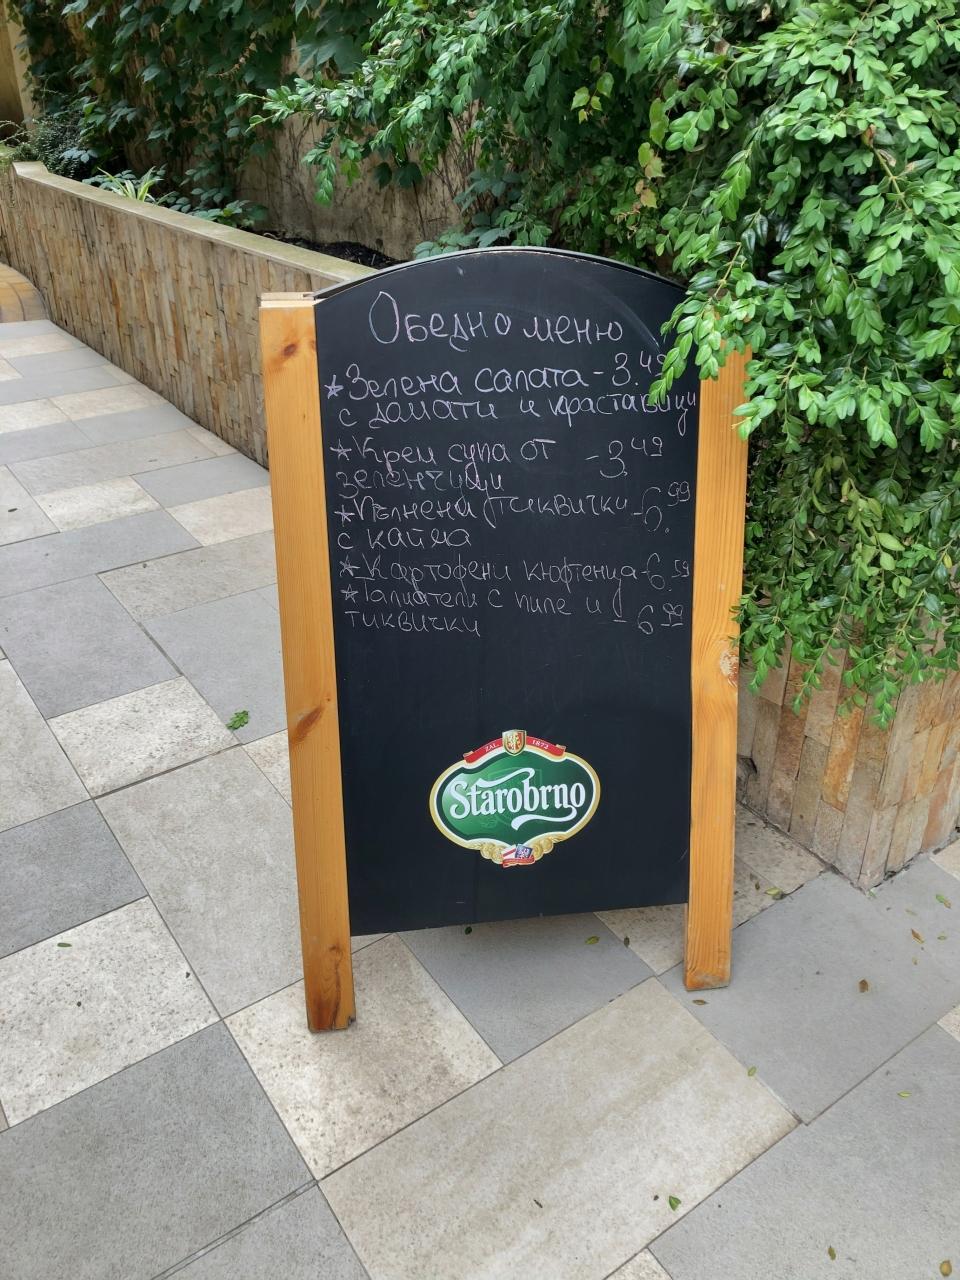 Обедно меню
*Зелена салата - 3.49
с домати и краставици
*Крем супа от - 3.49
зеленчуци
*Пълнена тиквички - 6.99
с кайма
*Картофени кюфтенца - 6.59
*Талиатели с пиле и - 6.99
тиквички
ZAL. 1872
Starobrno